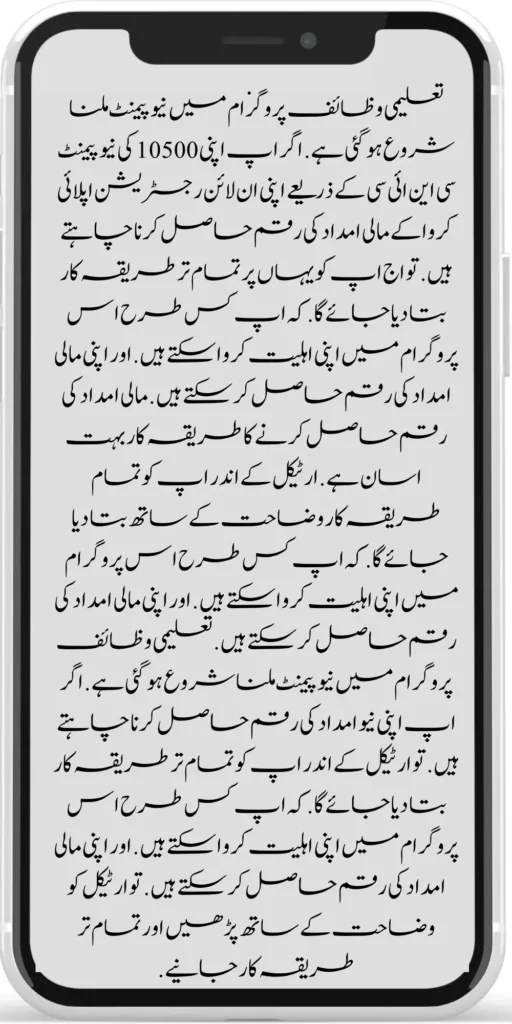 تعلیمی وظائف پروگرام میں نیو پیمنٹ ملنا
شروع ہو گئی ہے. اگر اپ اپنی 10500 کی نیو پیمنٹ
سی این ائی سی کے ذریعے اپنی ان لائن رجسٹریشن اپلائی
کروا کے مالی امداد کی رقم حاصل کرنا چاہتے
ہیں. تو اج اپ کو یہاں پر تمام تر طریقہ کار
بتا دیا جائے گا. کہ اپ کس طرح اس
پروگرام میں اپنی اہلیت کروا سکتے ہیں. اور اپنی مالی
امداد کی رقم حاصل کر سکتے ہیں. مالی امداد کی
رقم حاصل کرنے کا طریقہ کار بہت
اسان ہے. ارٹیکل کے اندر اپ کو تمام
طریقہ کار وضاحت کے ساتھ بتا دیا
جائے گا. کہ اپ کس طرح اس پروگرام
میں اپنی اہلیت کروا سکتے ہیں. اور اپنی مالی امداد کی
رقم حاصل کر سکتے ہیں. تعلیمی وظائف
پروگرام میں نیو پیمنٹ ملنا شروع ہو گئی ہے. اگر
اپ اپنی نیو امداد کی رقم حاصل کرنا چاہتے
ہیں. تو ارٹیکل کے اندر اپ کو تمام تر طریقہ کار
بتا دیا جائے گا. کہ اپ کس طرح اس
پروگرام میں اپنی اہلیت کروا سکتے ہیں. اور اپنی مالی
امداد کی رقم حاصل کر سکتے ہیں. تو ارٹیکل کو
وضاحت کے ساتھ پڑھیں اور تمام تر
طریقہ کار جانیے.